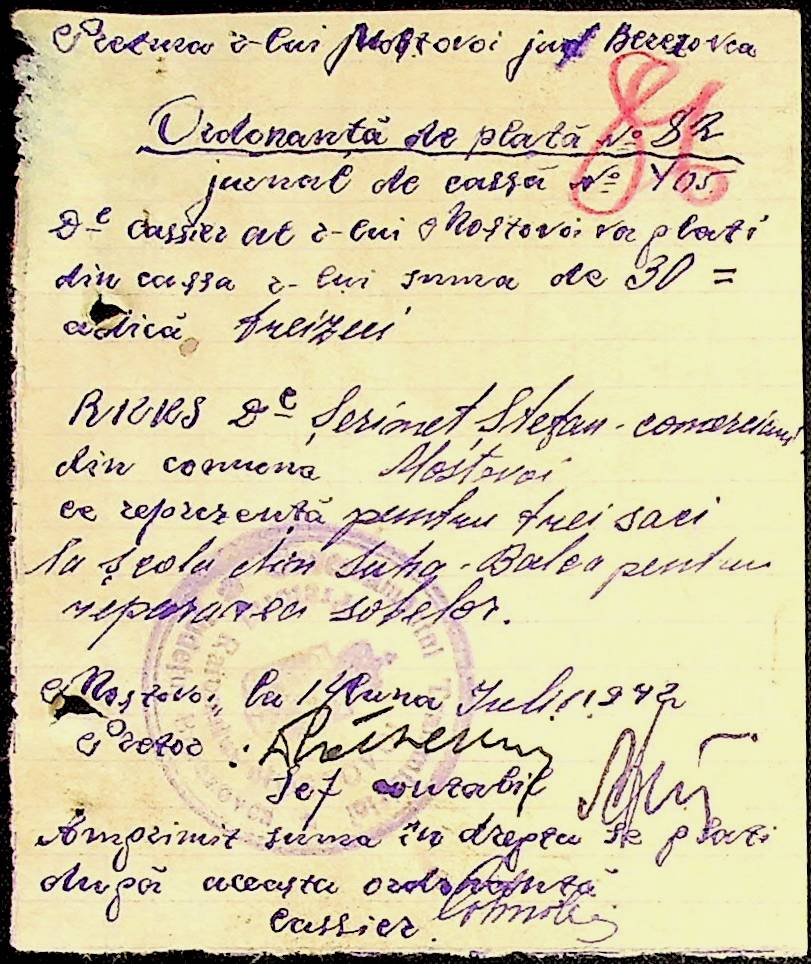 Pretura r-lui Mostovoi jud Berezovca
86
Ordonantă de plată № 82
jurnal de cassă № 405
D-l cassier al r-lui Mostovoi va plati
din cassa r-lui suma de 30 =
adică treizeci
RKKS D-l Șerimet Ștefan - comerciant
din comuna Mostovoi
ce reprezentă pentru trei saci
la școla din Suha-Balca pentru
repararea sobelor.
Mostovoi la 14 luna Iulii 1942
Pretor :
Șef contabil
Am primit suma în dreptu se plati
după aceasta ordonantă
Cassier